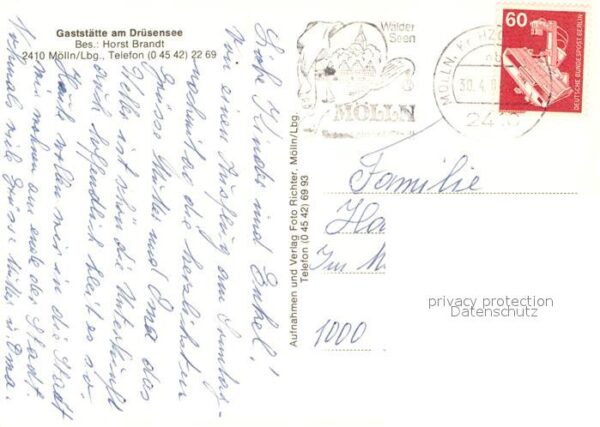 Gaststätte am Drüsensee
Bes.: Horst Brandt
2410 Mölln/Lbg., Telefon (0 45 42) 22 69
Liebe Kinder und Enkel!
Von dem Ausflug am Sonntag-
nachmittag die herzlichsten
Grüsse Mutter und Oma das
ist schön die Unterkunft
und hoffentlich bleibt es so.
Heute wollen wir in die Stadt
wir wohnen am ende der Stadt.
Nochmals viele Grüsse Mutter u. Oma.
Aufnahmen und Verlag Foto Richter, Mölln/Lbg.
Telefon (0 45 42) 69 93
Wälder
Seen
MÖLLN
MÖLLN,
30.4.
2410
60
DEUTSCHE BUNDESPOST BERLIN
Familie
Ha
Im M
1000
privacy protection
Datenschutz